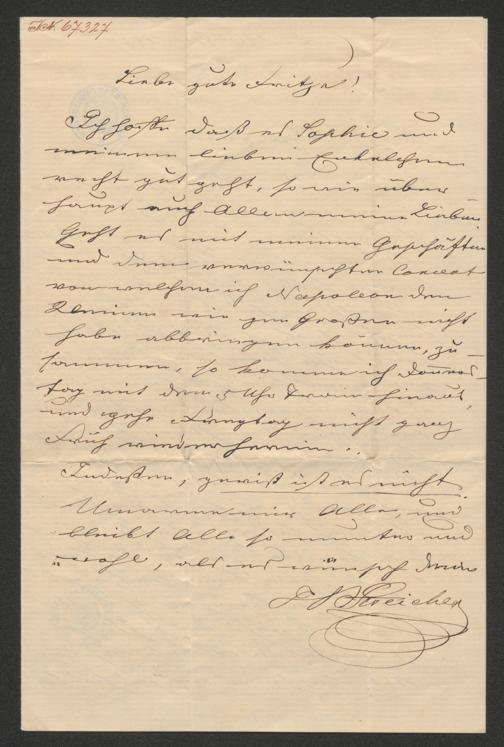 I.N. 67327
Liebe gute Fritze!
Ich hoffe daß es Sophie und
meinem lieben Enkelchen
recht gut geht, so wie über
haupt euch Allen meine Lieben
Geht es mit meinen Geschäften
und dem verwünschten Concert
von welchem ich Napoleon den
Kleinen wie zum Großen nicht
habe abbringen können, zu
sammen, so komme ich Donners
tag mit dem 5 Uhr Train hinaus,
und gehe Freytag nicht ganz
früh wieder herein..
Indessen, gewiß ist es nicht.
Umarme mir Alle, und
bleibt Alle so munter und
wohl, als es wünscht
JB Streicher